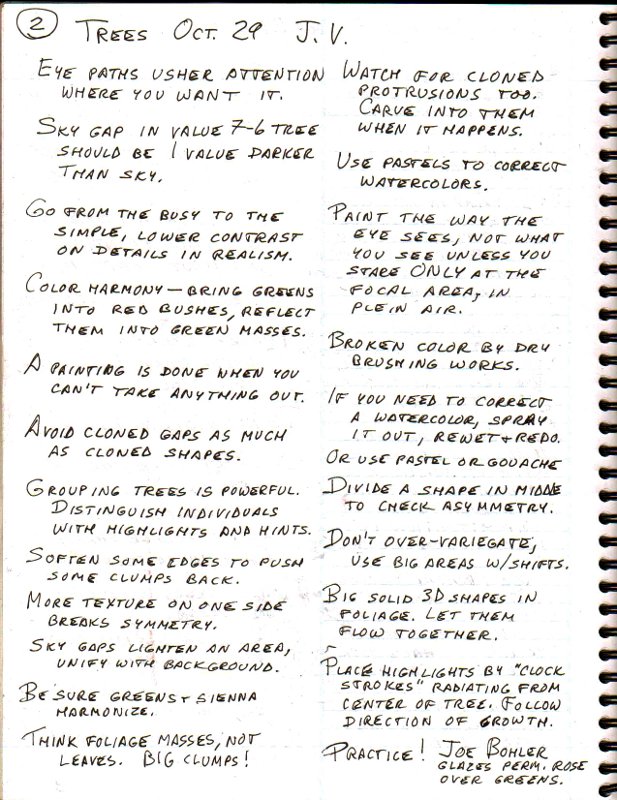 2 TREES OCT. 29 J. V.
EYE PATHS USHER ATTENTION
WHERE YOU WANT IT.
SKY GAP IN VALUE 7-6 TREE
SHOULD BE 1 VALUE DARKER
THAN SKY.
GO FROM THE BUSY TO THE
SIMPLE, LOWER CONTRAST
ON DETAILS IN REALISM.
COLOR HARMONY — BRING GREENS
INTO RED BUSHES, REFLECT
THEM INTO GREEN MASSES.
A PAINTING IS DONE WHEN YOU
CAN'T TAKE ANYTHING OUT.
AVOID CLONED GAPS AS MUCH
AS CLONED SHAPES.
GROUPING TREES IS POWERFUL.
DISTINGUISH INDIVIDUALS
WITH HIGHLIGHTS AND HINTS.
SOFTEN SOME EDGES TO PUSH
SOME CLUMPS BACK.
MORE TEXTURE ON ONE SIDE
BREAKS SYMMETRY.
SKY GAPS LIGHTEN AN AREA,
UNIFY WITH BACKGROUND.
BE SURE GREENS + SIENNA
HARMONIZE.
THINK FOLIAGE MASSES, NOT
LEAVES. BIG CLUMPS!
WATCH FOR CLONED
PROTRUSIONS TOO.
CARVE INTO THEM
WHEN IT HAPPENS.
USE PASTELS TO CORRECT
WATERCOLORS.
PAINT THE WAY THE
EYE SEES, NOT WHAT
YOU SEE UNLESS YOU
STARE ONLY AT THE
FOCAL AREA, IN
PLEIN AIR.
BROKEN COLOR BY DRY
BRUSHING WORKS.
IF YOU NEED TO CORRECT
A WATERCOLOR, SPRAY
IT OUT, REWET + REDO.
OR USE PASTEL OR GOUACHE
DIVIDE A SHAPE IN MIDDLE
TO CHECK ASYMMETRY.
DON'T OVER-VARIEGATE,
USE BIG AREAS W/SHIFTS.
BIG SOLID 3D SHAPES IN
FOLIAGE. LET THEM
FLOW TOGETHER.
PLACE HIGHLIGHTS BY "CLOCK
STROKES" RADIATING FROM
CENTER OF TREE. FOLLOW
DIRECTION OF GROWTH.
PRACTICE! JOE BOHLER
GLAZES PERM. ROSE
OVER GREENS.